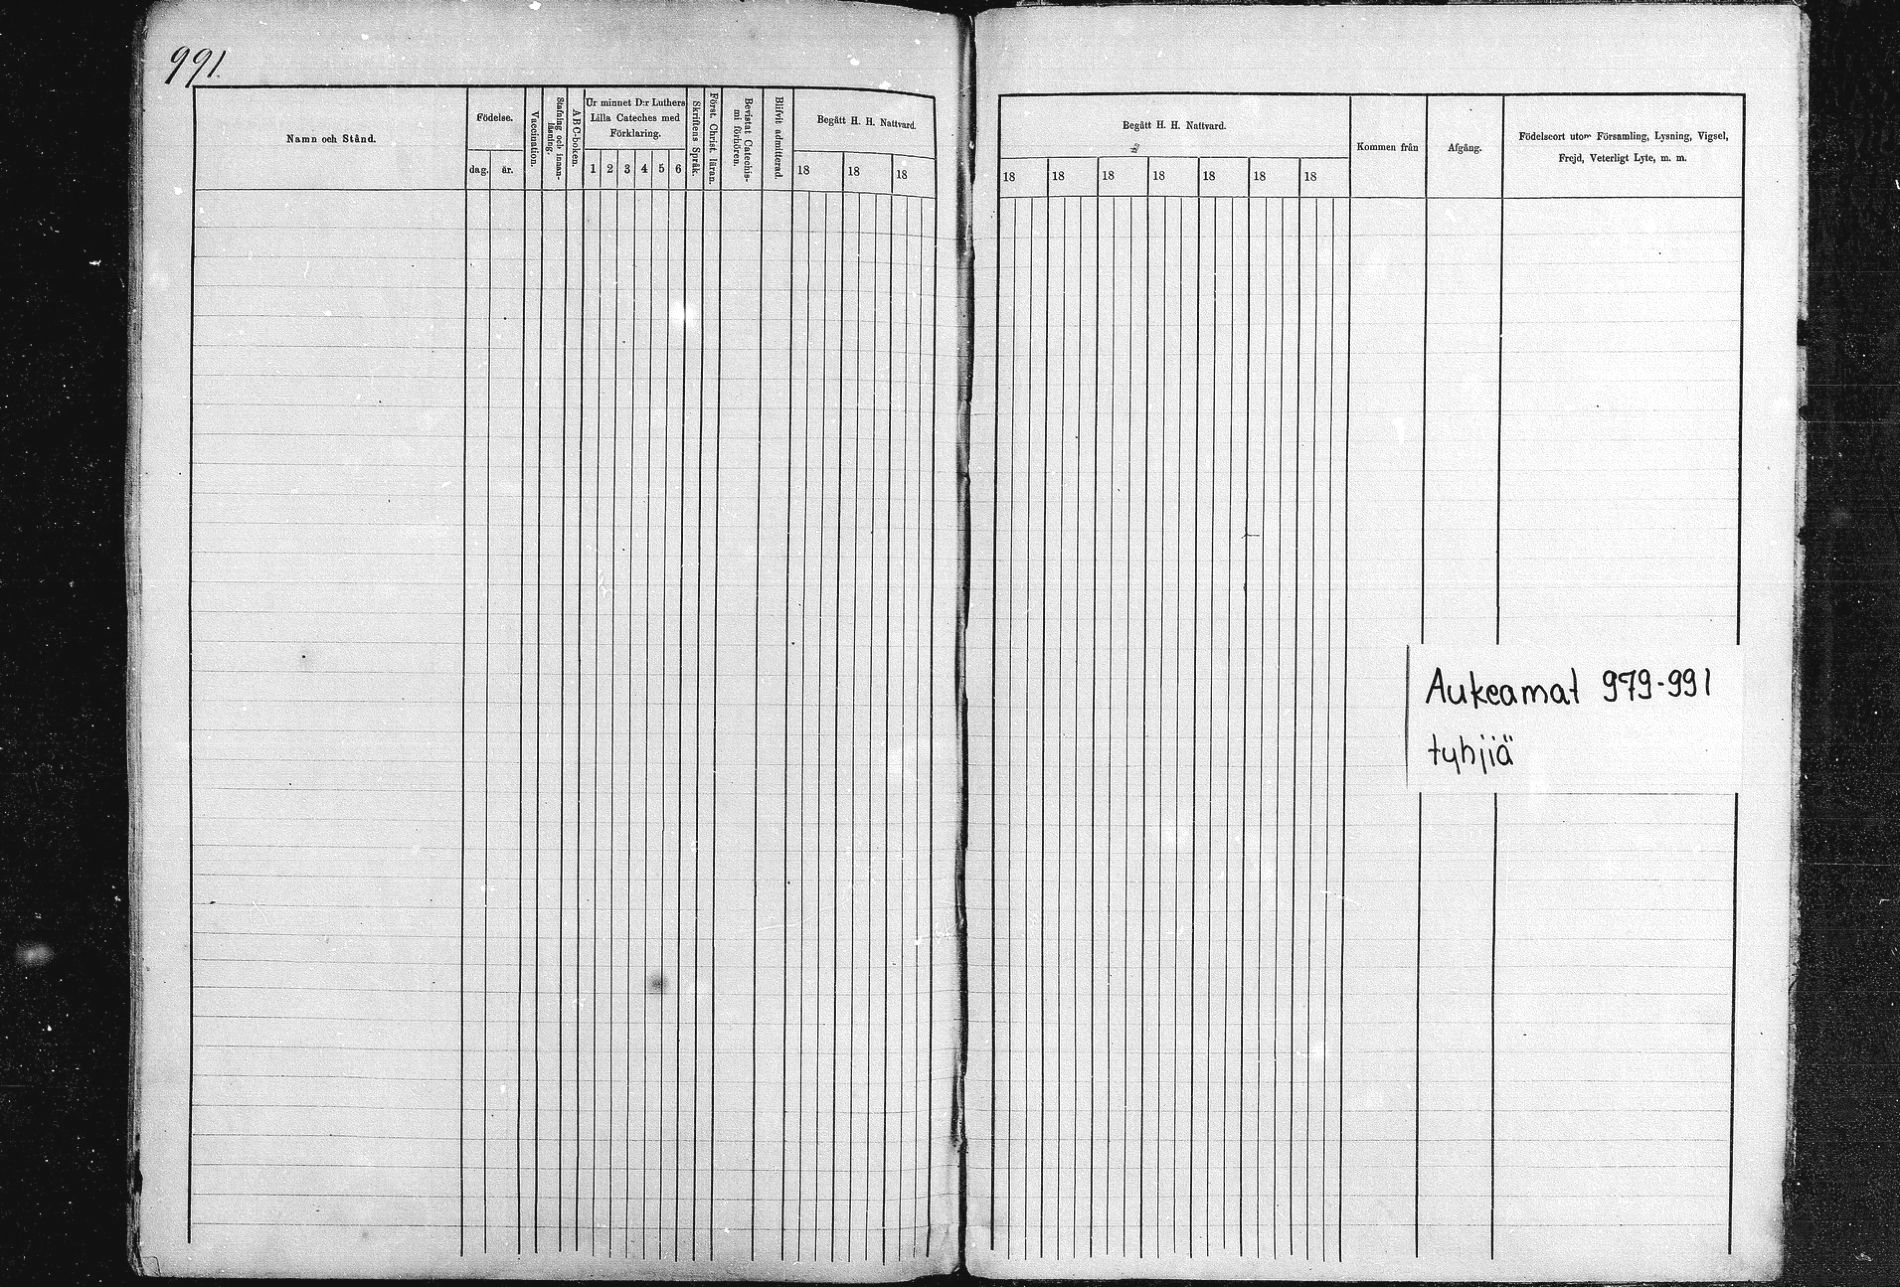 991.
Namn och Stånd.
Födelse.
dag.
år.
Vaccination.
Stafning och innan-
läsning.
ABC-boken.
Ur minnet D:r Luthers
Lilla Cateches med
Förklaring.
1 2 3 4 5 6
Skriftens Språk.
Först. Christ. läran.
Bevistat Catechis-
mi förhören.
Blifvit admitterad.
Begått H. H. Nattvard.
18 18 18
Begått H. H. Nattvard.
18 18 18 18 18 18 18
Kommen från
Afgång.
Födelseort utom Församling, Lysning, Vigsel,
Frejd, Veterligt Lyte, m. m.
Aukeamat 979-991
tyhjiä